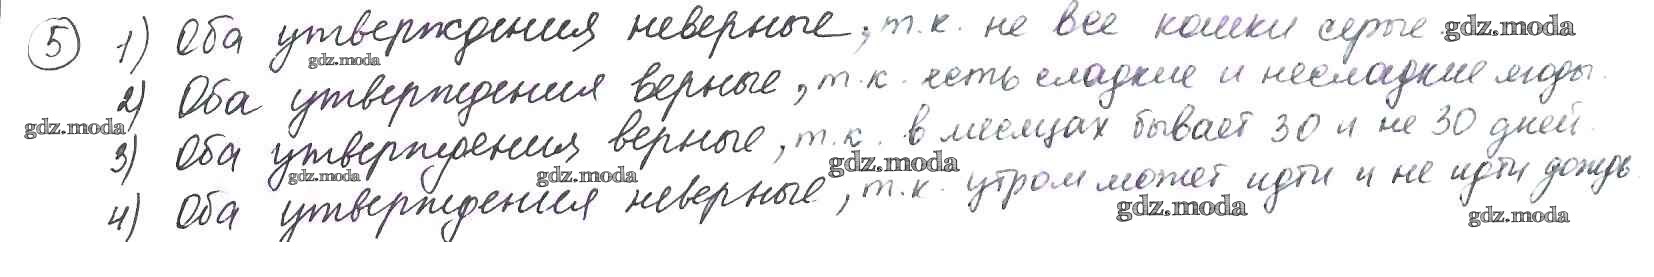 5) 1) Оба утверждения неверные, т.к. не все кошки серые. gdz.moda
gdz.moda
2) Оба утверждения верные, т.к. есть сладкие и несладкие ягоды.
gdz.moda
3) Оба утверждения верные, т.к. в месяцах бывает 30 и не 30 дней.
gdz.moda gdz.moda gdz.moda
4) Оба утверждения неверные, т.к. утром может идти и не идти дождь.
gdz.moda gdz.moda